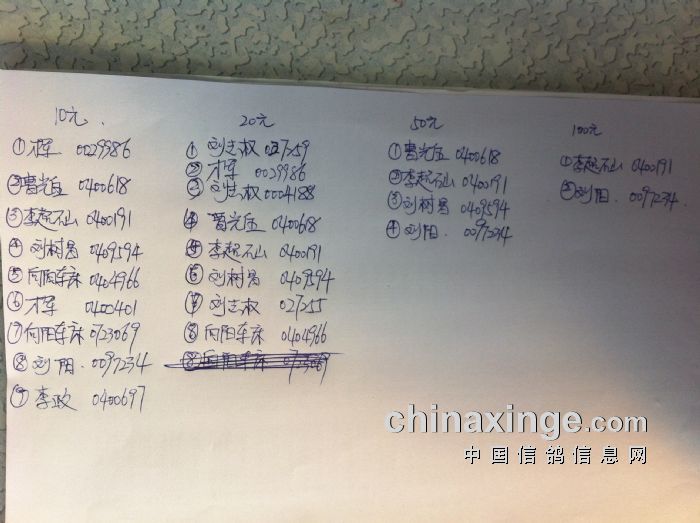 10元
①才军 0029986
②曹光宝 0400618
③李起山 0400191
④刘树昌 0409594
⑤向阳车床 0404966
⑥才军 0400401
⑦向阳车床 0723069
⑧刘阳. 0097234
⑨李政 0400697
20元
①刘志权
②才军 0029986
③刘志权 0004188
④曹光宝 0400618
⑤李起山 0400191
⑥刘树昌 0409594
⑦刘志权 027255
⑧向阳车床 0404966
向阳车床 0723069
50元
①曹光宝 0400618
②李起山 0400191
③刘树昌 0409594
④刘阳. 0097234
100元
①李起山 0400191
②刘阳. 0097234
chinaxinge.com
中国信鸽信息网